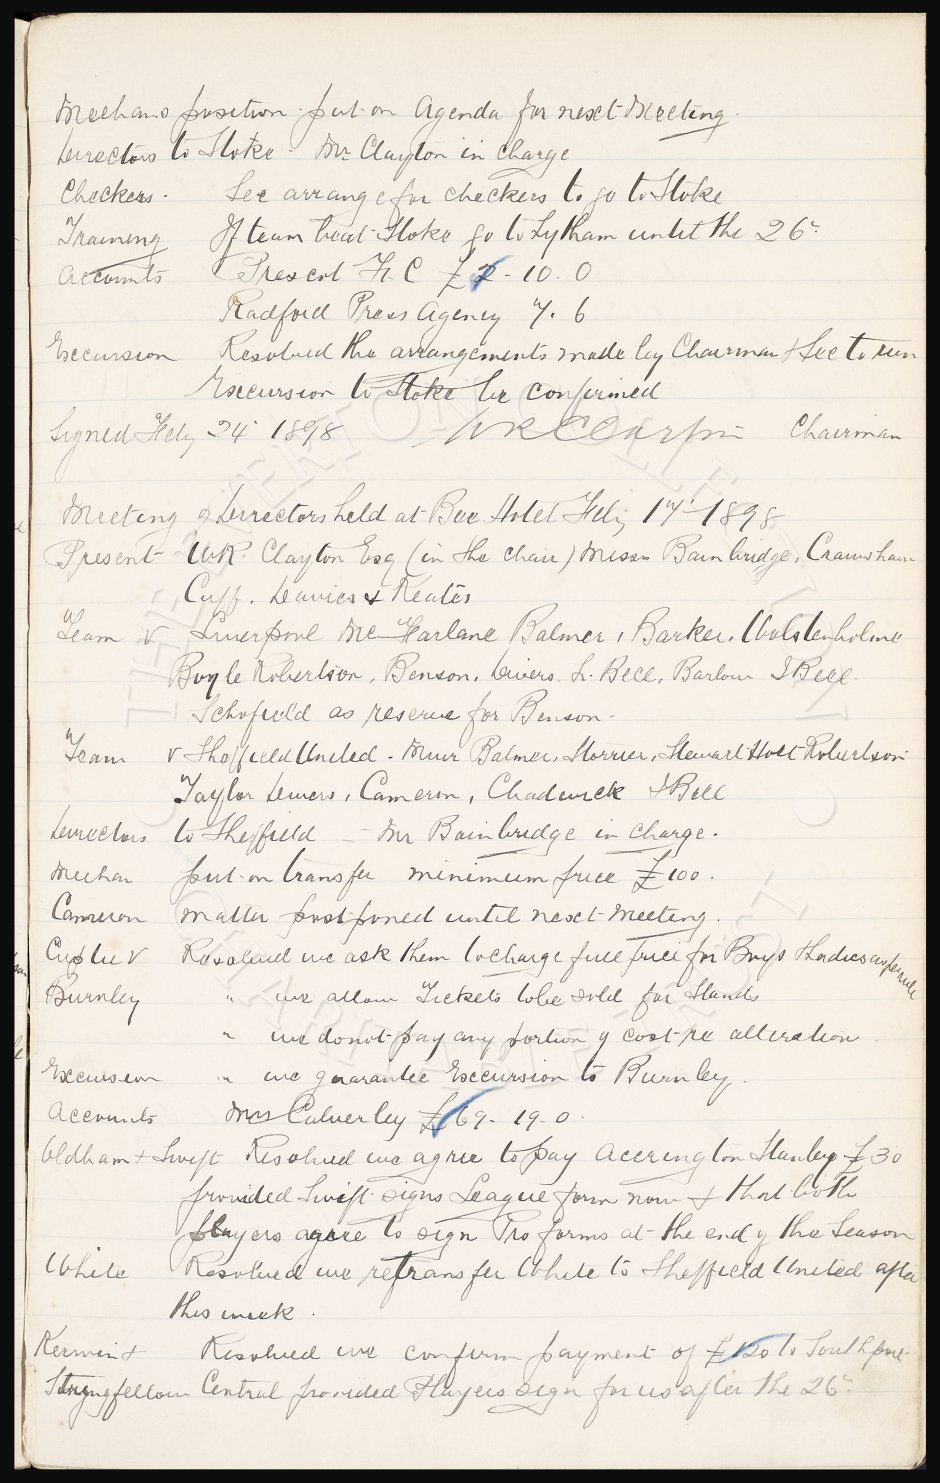 Meehans position put on Agenda for next Meeting.
Directors to Stoke - Mr Clayton in charge
Checkers. Sec arrange for checkers to go to Stoke
Training If team beat Stoke go to Lytham until the 26th
Accounts Prescot F. C £2-10.0
Radford Press Agency 7.6
Excursion Resolved the arrangements made by Chairman & Sec to run
Excursion to Stoke be confirmed
Signed Feby 24th 1898 WR Clayton Chairman
Meeting of Directors held at Bee Hotel Feby 17th 1898
Present WR. Clayton Esq (in the chair) Messrs Bainbridge, Crawshaw
Cuff, Davies & Keates
Team v Liverpool McFarlane Balmer, Barker, Wolstenholme
Boyle Robertson, Benson, Divers L. Bell, Barlow J Bell.
Schofield as reserve for Benson.
Team v Sheffield United - Muir Balmer, Storrier, Stewart Holt Robertson
Taylor Divers, Cameron, Chadwick & Bell
Directors to Sheffield - Mr Bainbridge in charge.
Meehan put on transfer minimum price £100.
Cameron matter postponed until next meeting.
Cuptie v Resolved we ask them to charge full price for Boys & Ladies as per rule
Burnley " we allow Tickets to be sold for Stands
" we do not pay any portion of cost re alteration
Excursion " we guarantee Excursion to Burnley.
Accounts Mrs Calverley £69-19.0.
Oldham & Swift Resolved we agree to pay Accrington Stanley £30
provided Swift signs League form now & that both
players agree to sign Pro forms at the end of the Season
White Resolved we retransfer White to Sheffield United after
this week.
Kerwin & Resolved we confirm payment of £120 to Southport
Stringfellow Central provided Players sign for us after the 26th